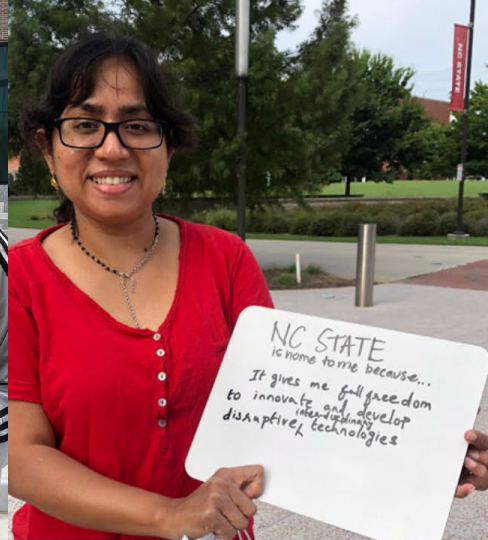 NC STATE
NC STATE
is home to me because...
It gives me full freedom
to innovate and develop
interdisciplinary
disruptive, technologies